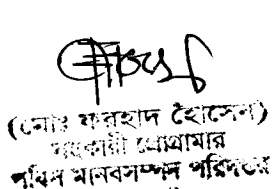 (মোঃ ফরহাদ হোসেন)
সহকারী প্রোগ্রামার
মানবসম্পদ পরিদপ্তর